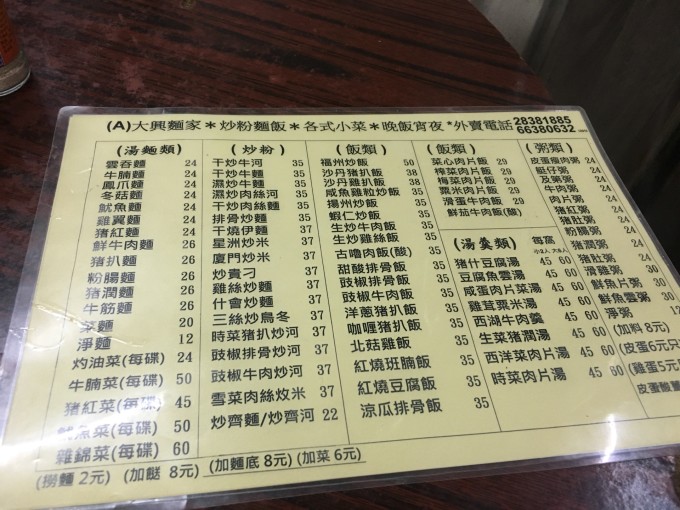 (A)大興麵家＊炒粉麵飯＊各式小菜＊晚飯宵夜*外賣電話 28381885
66380632
(湯麵類)
雲吞麵 24
牛腩麵 24
鳳爪麵 24
冬菇麵 24
魷魚麵 24
雞翼麵 24
豬紅麵 24
鮮牛肉麵 26
豬扒麵 26
粉腸麵 26
豬潤麵 26
牛筋麵 26
菜麵 20
淨麵 12
灼油菜(每碟) 24
牛腩菜(每碟) 50
豬紅菜(每碟) 45
魷魚菜(每碟) 50
雜錦菜(每碟) 60
(炒粉)
干炒牛河 35
干炒牛麵 35
濕炒牛河 35
濕炒肉絲河 35
干炒肉絲麵 35
排骨炒麵 35
干燒伊麵 35
星洲炒米 37
廈門炒米 37
炒貴刁 37
雞絲炒麵 37
什會炒麵 37
三絲炒烏冬 37
時菜豬扒炒河 37
豉椒排骨炒河 37
豉椒牛肉炒河 37
雪菜肉絲炆米 37
炒齊麵/炒齊河 22
(飯類)
福州炒飯 50
沙丹豬扒飯 38
沙丹雞扒飯 38
咸魚雞粒炒飯 38
揚州炒飯
蝦仁炒飯
生炒牛肉飯
生炒雞絲飯
古嚕肉飯(酸)
甜酸排骨飯 35
豉椒排骨飯 35
豉椒牛肉飯 35
洋蔥豬扒飯 35
咖喱豬扒飯 35
北菇雞飯 35
紅燒班腩飯 35
紅燒豆腐飯 35
涼瓜排骨飯 35
(飯類)
菜心肉片飯 29
榨菜肉片飯 29
梅菜肉片飯 29
粟米肉片飯 29
滑蛋牛肉飯 29
鮮茄牛肉飯(酸)
(湯羹類) 每窩
豬什豆腐湯 45 60
豆腐魚雲湯 45 60
咸蛋肉片菜湯 45 60
雞茸粟米湯 45 60
西湖牛肉羹 45 60
生菜豬潤湯 45 60
西洋菜肉片湯 45 60
時菜肉片湯 45 60
(粥類)
皮蛋瘦肉粥 24
艇仔粥 24
及第粥 24
牛肉粥 24
肉片粥 24
豬紅粥 24
豬肚粥 24
粉腸粥 24
豬潤粥 24
豬什粥 24
滑雞粥 30
鮮魚片粥 30
鮮魚雲粥 30
淨粥 12
(加料 8元)
(皮蛋6元只
(雞蛋5元
皮蛋酸薑
(撈麵 2元) (加餸 8元) (加麵底 8元) (加菜 6元)